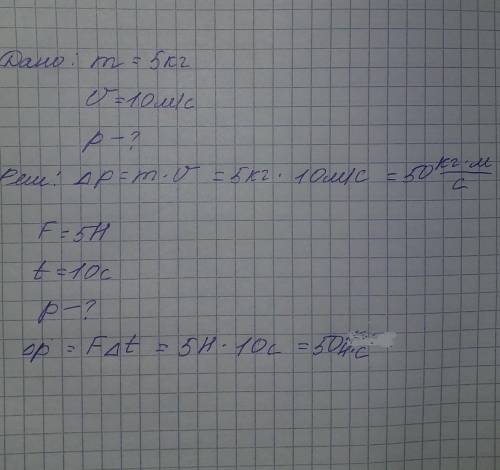 Дано: m = 5кг
υ = 10м/с
p - ?
Реш: Δp = m · υ = 5кг · 10м/с = 50 кг·м/с
F = 5Н
t = 10с
p - ?
Δp = FΔt = 5Н · 10с = 50Н·с